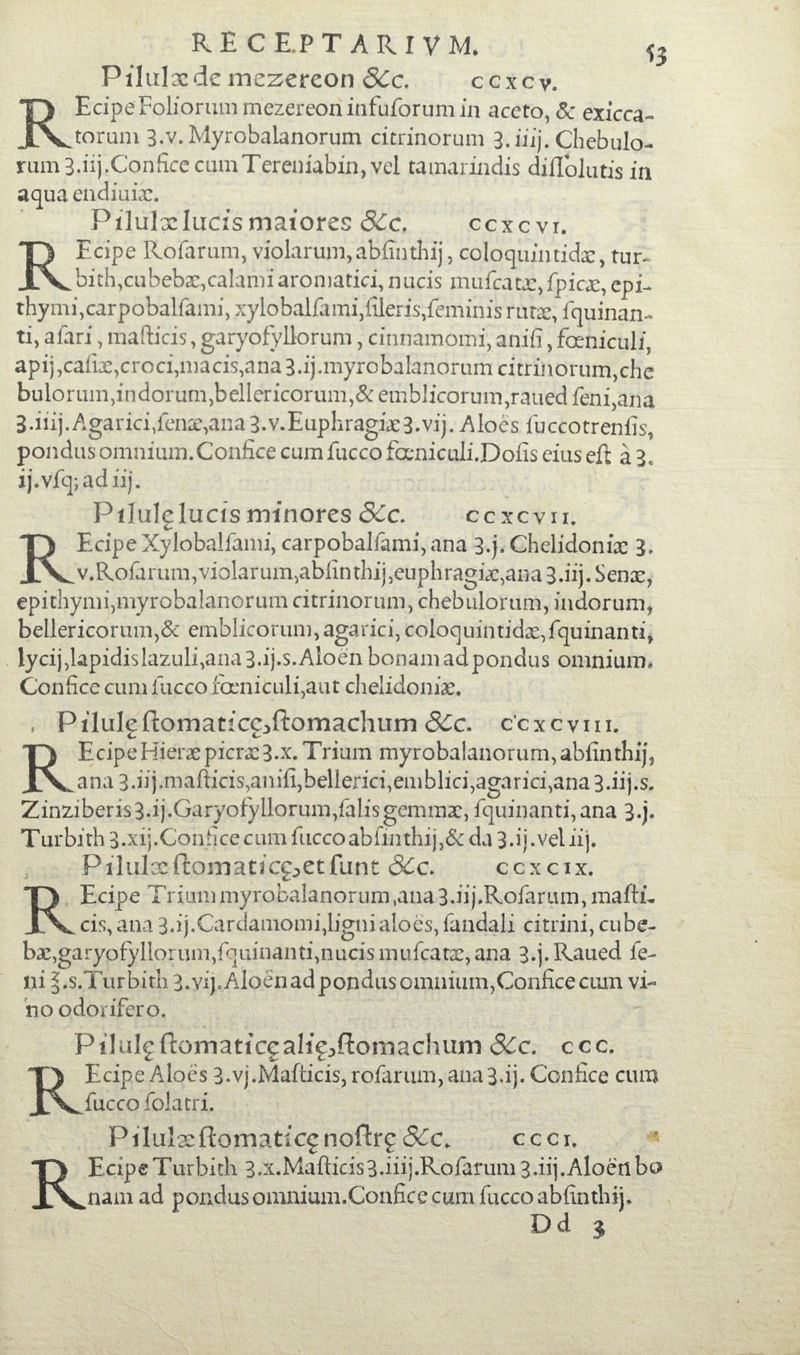 RECEPTARIVM. 53
Pilulæ de mezereon &c. ccxcv.
REcipe Foliorum mezereon infuſorum in aceto, & exicca-
torum ʒ.v. Myrobalanorum citrinorum ʒ.iiij. Chebulo-
rum ʒ.iij.Confice cum Tereniabin, vel tamarindis diſſolutis in
aqua endiuiæ.
Pilulæ lucis maiores &c. ccxcvi.
REcipe Roſarum, violarum, abſinthij, coloquintidæ, tur-
bith,cubebæ,calami aromatici, nucis muſcatæ, ſpicæ, epi-
thymi,carpobalſami, xylobalſami,ſileris,ſeminis rutæ, ſquinan-
ti, aſari, maſticis, garyofyllorum, cinnamomi, aniſi, fœniculi,
apij,caſiæ,croci,macis,ana ʒ.ij.myrobalanorum citrinorum,che
bulorum,indorum,bellericorum,& emblicorum,raued ſeni,ana
ʒ.iiij.Agarici,ſenæ,ana ʒ.v.Euphragiæ ʒ.vij. Aloës ſuccotrenſis,
pondus omnium.Confice cum ſucco fœniculi.Doſis eius eſt à ʒ.
ij.vſq; ad iij.
Pilulę lucis minores &c. ccxcvii.
REcipe Xylobalſami, carpobalſami, ana ʒ.j. Chelidoniæ ʒ.
v.Roſarum,violarum,abſinthij,euphragiæ,ana ʒ.iij. Senæ,
epithymi,myrobalanorum citrinorum, chebulorum, indorum,
bellericorum,& emblicorum, agarici, coloquintidæ, ſquinanti,
lycij,lapidis lazuli,ana ʒ.ij.s.Aloën bonam ad pondus omnium.
Confice cum ſucco fœniculi,aut chelidoniæ.
Pilulę ſtomaticę,ſtomachum &c. ccxcviii.
REcipe Hieræ picræ ʒ.x. Trium myrobalanorum, abſinthij,
ana ʒ.iij.maſticis,aniſi,bellerici,emblici,agarici,ana ʒ.iij.s.
Zinziberis ʒ.ij.Garyofyllorum,ſalis gemmæ, ſquinanti, ana ʒ.j.
Turbith ʒ.xij.Confice cum ſucco abſinthij,& da ʒ.ij.vel iij.
Pilulæ ſtomaticę,et ſunt &c. ccxcix.
REcipe Trium myrobalanorum,ana ʒ.iij.Roſarum, maſti-
cis, ana ʒ.ij.Cardamomi,ligni aloës, ſandali citrini, cube-
bæ,garyofyllorum,ſquinanti,nucis muſcatæ, ana ʒ.j. Raued ſe-
ni ℥.s.Turbith ʒ.vij.Aloën ad pondus omnium,Confice cum vi-
no odorifero.
Pilulę ſtomaticę alię,ſtomachum &c. ccc.
REcipe Aloës ʒ.vj.Maſticis, roſarum, ana ʒ.ij. Confice cum
ſucco ſolatri.
Pilulæ ſtomaticę noſtrę &c. ccci.
REcipe Turbith ʒ.x.Maſticis ʒ.iiij.Roſarum ʒ.iij.Aloën bo
nam ad pondus omnium.Confice cum ſucco abſinthij.
Dd 3